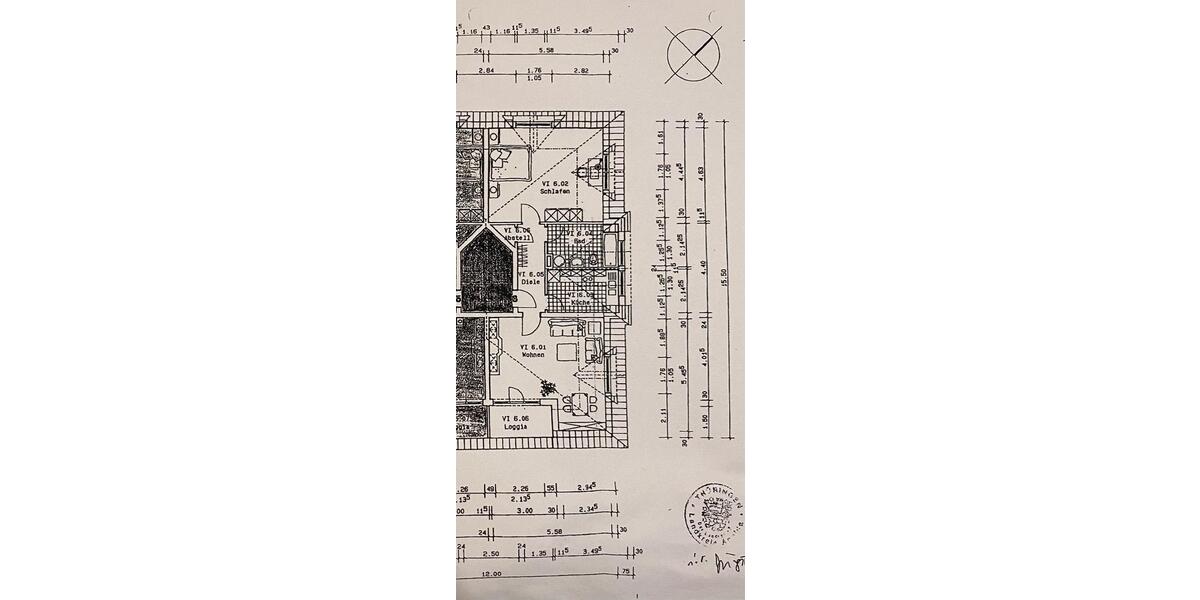 1.16 43 1.16 11⁵ 1.35 11⁵ 3.49⁵ 30
24 5.58 30
2.84 1.76 2.82
1.05
VI 6.02
Schlafen
VI 6.04
Bad
VI 6.05
Diele
VI 6.03
Küche
VI 6.01
Wohnen
VI 6.06
Loggia
1.61 1.76 1.05 1.37⁵ 1.12⁵ 1.25⁵ 1.30 24 11⁵ 1.25⁵ 1.30 1.12⁵ 1.88⁵ 1.76 1.05 2.11
4.44⁵ 30 2.14²⁵ 2.14²⁵ 30 5.45⁵ 30
30 4.63 11⁵ 4.40 24 4.01⁵ 30 1.50
15.50
49 2.26 55 2.94⁵
2.13⁵ 2.13⁵
11⁵ 3.00 30 2.34⁵
24 5.58 30
24 2.50 24 1.35 11⁵ 3.49⁵ 30
12.00 75
THÜRINGEN
Landkreis
i.A.